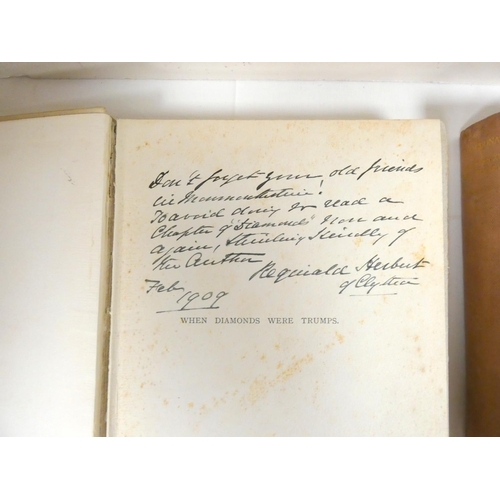 Don't forget your old friends
in Monmouthshire!
To avoid doing so read a
Chapter of "Diamonds" now and
again, thinking kindly of
the Author
Reginald Herbert
of Clytha
Feb
1909
WHEN DIAMONDS WERE TRUMPS.